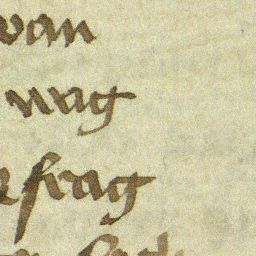 van
wag
frag